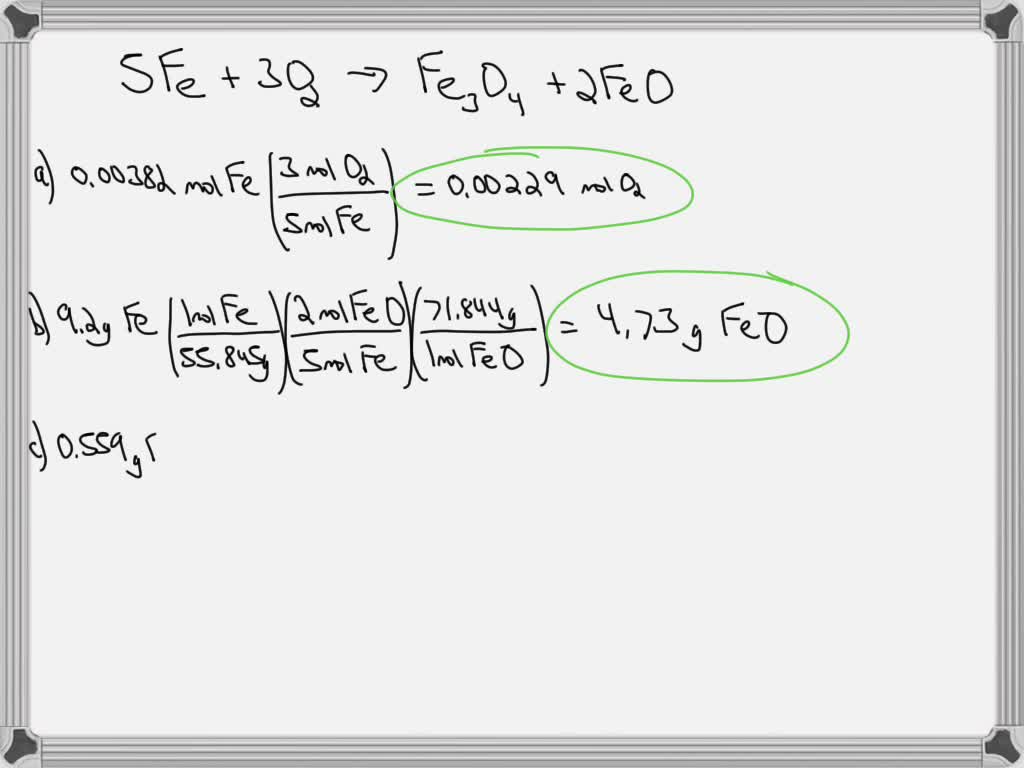 5Fe + 3O₂ → Fe₃O₄ + 2FeO
a) 0.00382 mol Fe (3 mol O₂ / 5 mol Fe) = 0.00229 mol O₂
b) 9.2g Fe (1 mol Fe / 55.845g)(2 mol FeO / 5 mol Fe)(71.844g / 1 mol FeO) = 4.73 g FeO
c) 0.559 g